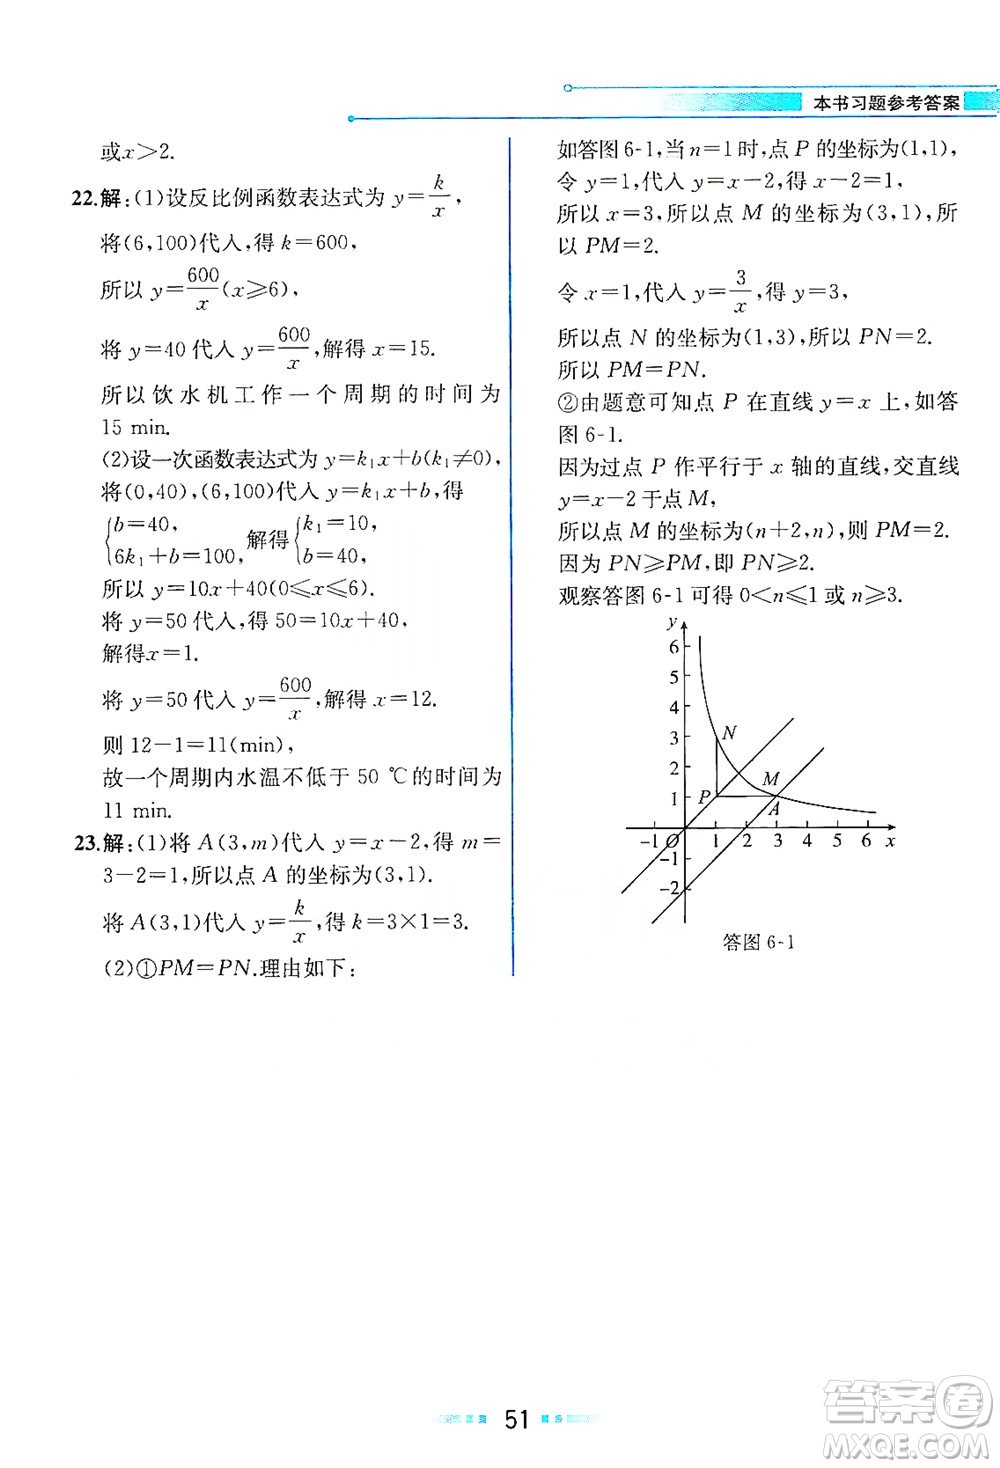 本书习题参考答案
或x>2.
22.解:(1)设反比例函数表达式为 y=k/x,
将(6,100)代入,得 k=600,
所以 y=600/x(x≥6),
将 y=40 代入 y=600/x,解得 x=15.
所以饮水机工作一个周期的时间为
15 min.
(2)设一次函数表达式为 y=k₁x+b(k₁≠0),
将(0,40),(6,100)代入 y=k₁x+b,得
{b=40, 6k₁+b=100, 解得{k₁=10, b=40,
所以 y=10x+40(0≤x≤6).
将 y=50 代入,得 50=10x+40,
解得x=1.
将 y=50 代入 y=600/x,解得 x=12.
则 12-1=11(min),
故一个周期内水温不低于 50 ℃的时间为
11 min.
23.解:(1)将 A(3,m)代入 y=x-2,得 m=
3-2=1,所以点 A 的坐标为(3,1).
将 A(3,1)代入 y=k/x,得 k=3×1=3.
(2)①PM=PN.理由如下:
如答图 6-1,当 n=1 时,点 P 的坐标为(1,1),
令 y=1,代入 y=x-2,得 x-2=1,
所以 x=3,所以点 M 的坐标为(3,1),所
以 PM=2.
令 x=1,代入 y=3/x,得 y=3,
所以点 N 的坐标为(1,3),所以 PN=2.
所以 PM=PN.
②由题意可知点 P 在直线 y=x 上,如答
图 6-1.
因为过点 P 作平行于 x 轴的直线,交直线
y=x-2 于点 M,
所以点 M 的坐标为(n+2,n),则 PM=2.
因为 PN≥PM,即 PN≥2.
观察答图 6-1 可得 0<n≤1 或 n≥3.
y
6
5
4
3 N
2 M
1 P A
-1 O 1 2 3 4 5 6 x
-1
-2
答图 6-1
51
答案卷
MXQE.COM